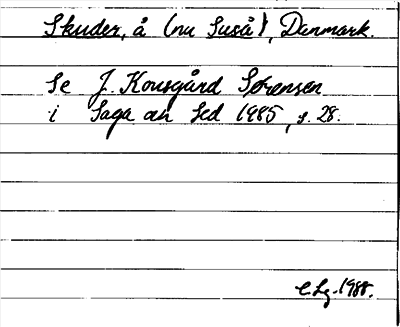 Skuder, å (nu Suså), Danmark.
Se J. Kousgård Sørensen
i Saga och Sed 1985, s. 28.
C. Lg. 1988.